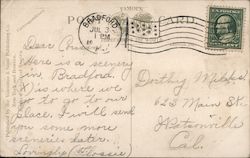 POST CARD
BRADFORD
JUL 3
PM
Dear Cousin,
Here is a scenery
in Bradford.
X is where we
go to go to our
place. I will send
you some more
scenery later.
Lovingly Flossie
Dorthy
623 Main St.
Watsonville
Cal.